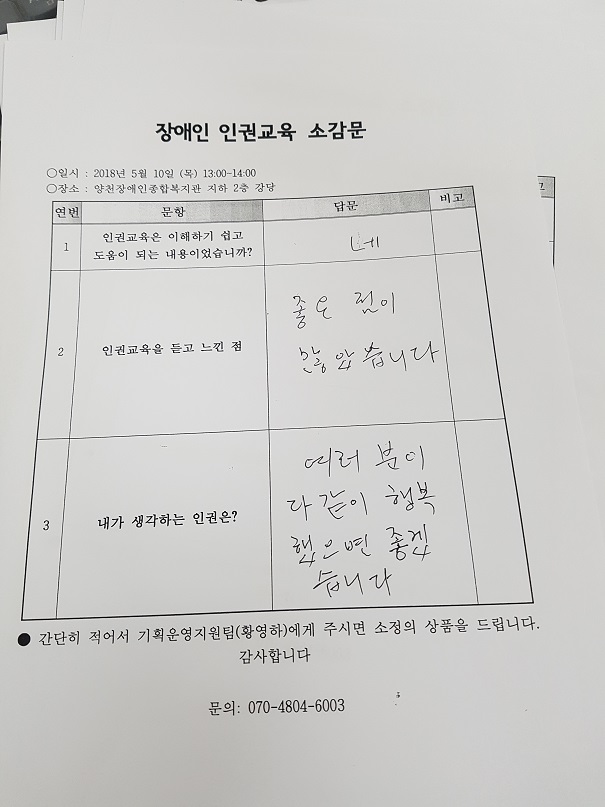 장애인 인권교육 소감문
○일시 : 2018년 5월 10일 (목) 13:00-14:00
○장소 : 양천장애인종합복지관 지하 2층 강당
연번 문항 답문 비고
1 인권교육은 이해하기 쉽고 네
도움이 되는 내용이었습니까?
2 인권교육을 듣고 느낀 점 좋은 점이
많았습니다
3 내가 생각하는 인권은? 여러 분이
다 같이 행복
했으면 좋겠
습니다
● 간단히 적어서 기획운영지원팀(황영하)에게 주시면 소정의 상품을 드립니다.
감사합니다
문의: 070-4804-6003